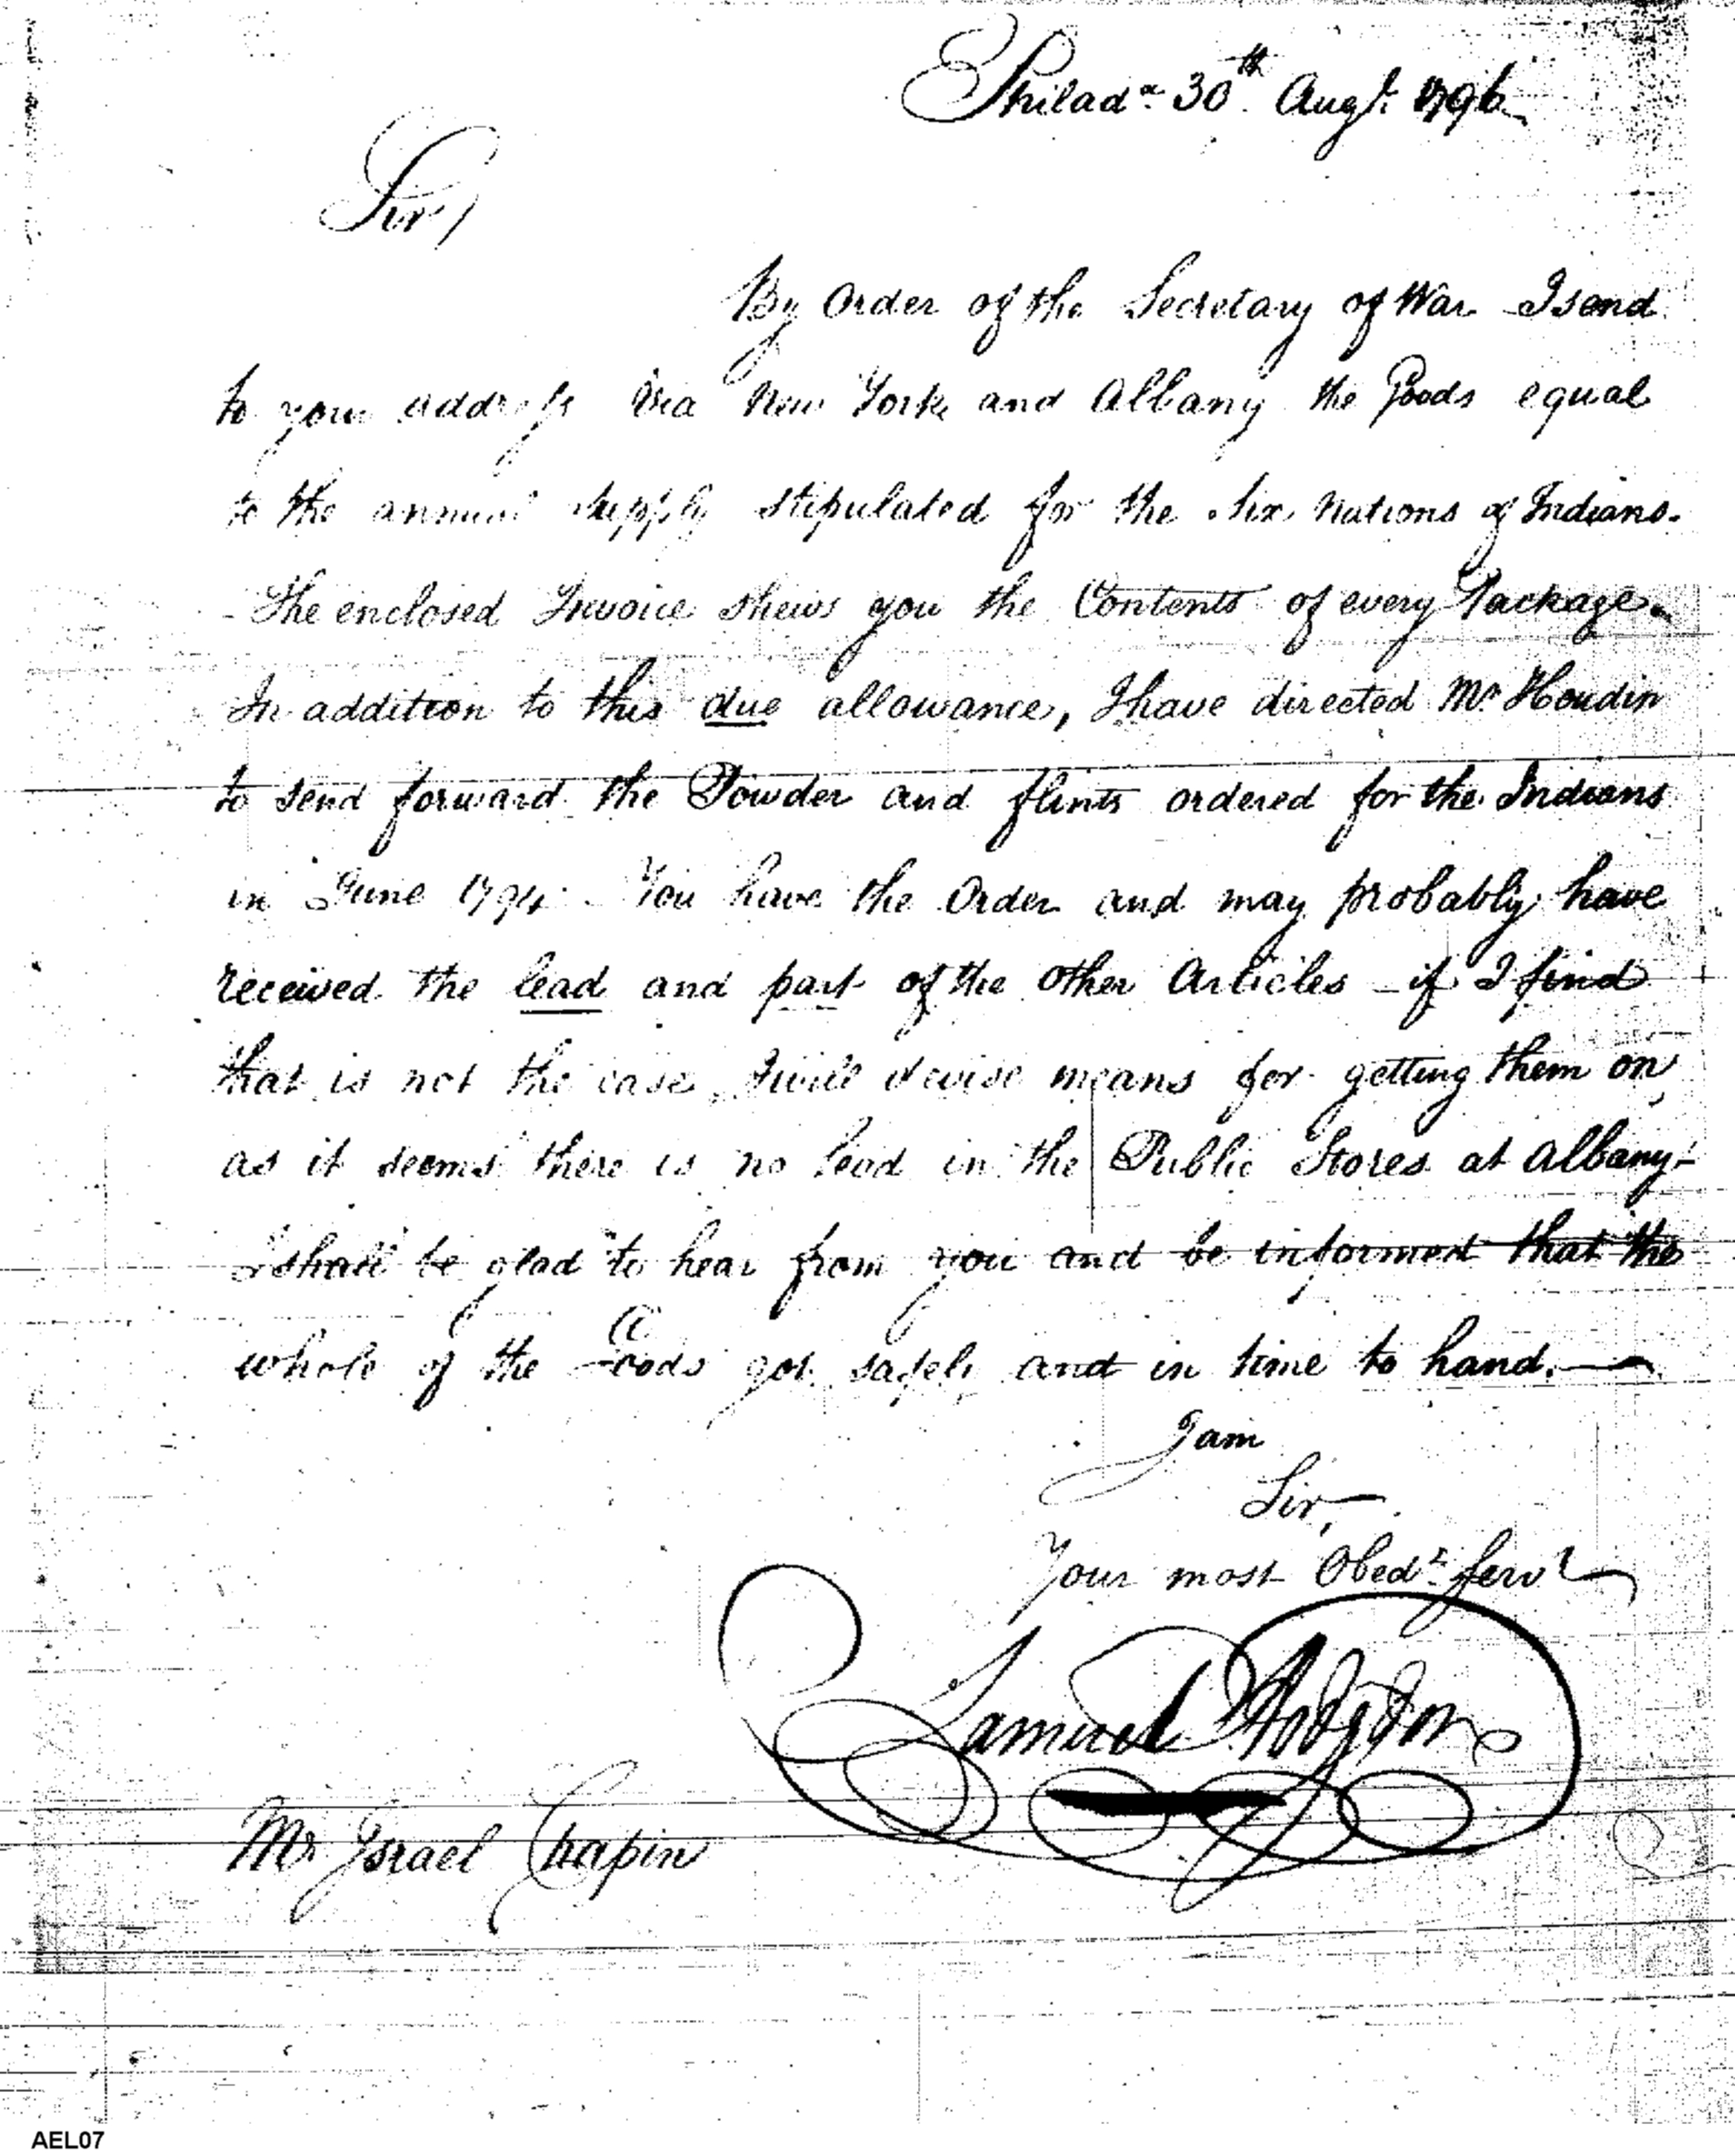 Philad.a 30th Augt. 1796
Sir/
By Order of the Secretary of War I send
to your address via New York and Albany the Goods equal
to the annual supply stipulated for the Six Nations of Indians.
- The enclosed Invoice shews you the Contents of every Package.
In addition to this due allowance, I have directed Mr. Houdin
to send forward the Powder and flints ordered for the Indians
in June 1794. You have the Order and may probably have
received the lead and part of the other Articles - if I find
that is not the case, I will devise means for getting them on
as it seems there is no lead in the Public Stores at Albany -
I shall be glad to hear from you and be informed that the
whole of the Goods got safely and in time to hand. —
I am
Sir,
Your most Obedt. servt
Samuel Hodgdon
Mr. Israel Chapin
AEL07